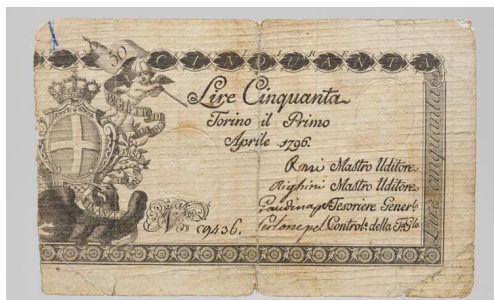 50
CINQUANTA
Lire Cinquanta
Torino il Primo
Aprile 1796.
Mastro Uditore
Righini Mastro Uditore
Tesoriere Gener.le
9436.
Control: della
FINANZE
Lire cinquanta